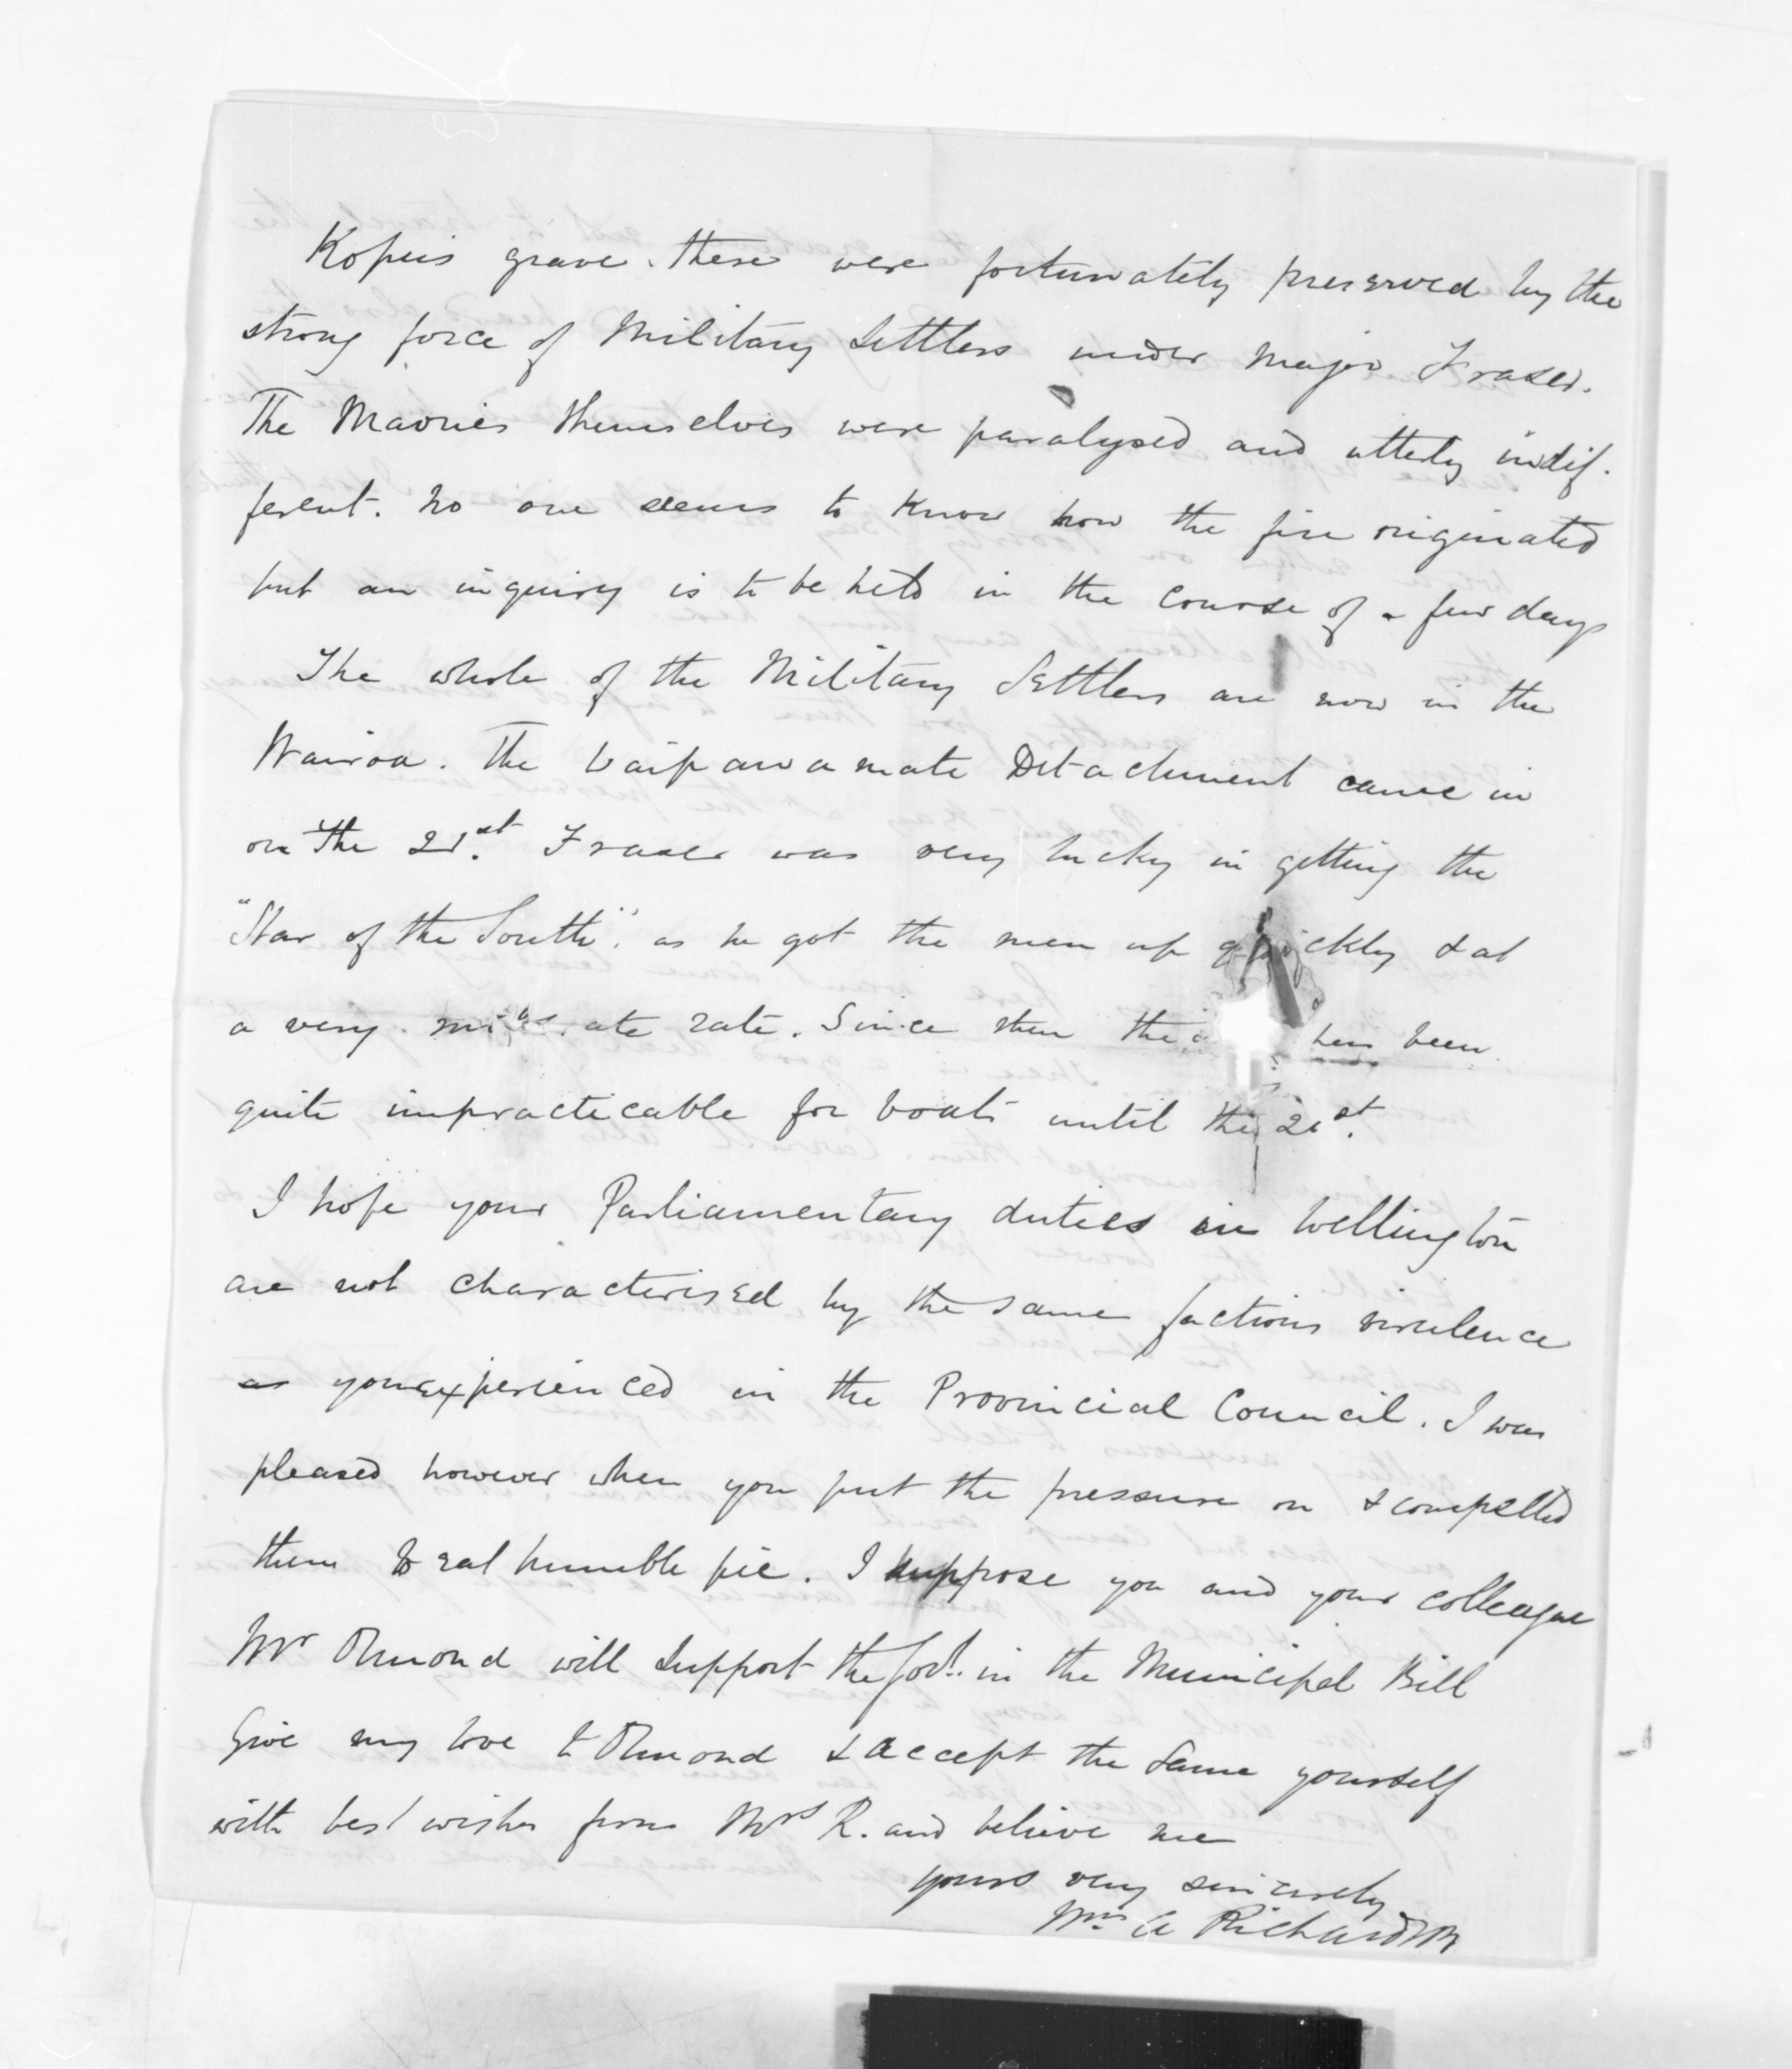 Kopus grave. These were fortunately preserved by the
strong force of Military Settlers under Major Fraser.
The Maories themselves were paralysed and utterly indif-
ferent. No one seems to know how the fire originated
but an inquiry is to be held in the course of a few days
The whole of the Military Settlers are now in the
Wairoa. The Waipawamate Detachment came in
on the 21st. Fraser was very lucky in getting the
"Star of the South", as he got the men up quickly & at
a very rate. Since then the has been
quite impracticable for boats until the
I hope your Parliamentary duties in Wellington
are not characterised by the same factious virulence
as you experienced in the Provincial Council. I was
pleased however when you put the pressure on & compelled
them to eat humble pie. I suppose you and your colleague
Mr Ormond will support the Govt. in the Municipal Bill
Give my love to Ormond & accept the same yourself
with best wishes from Mrs R. and believe me
yours very sincerely
Wm. A Richardson